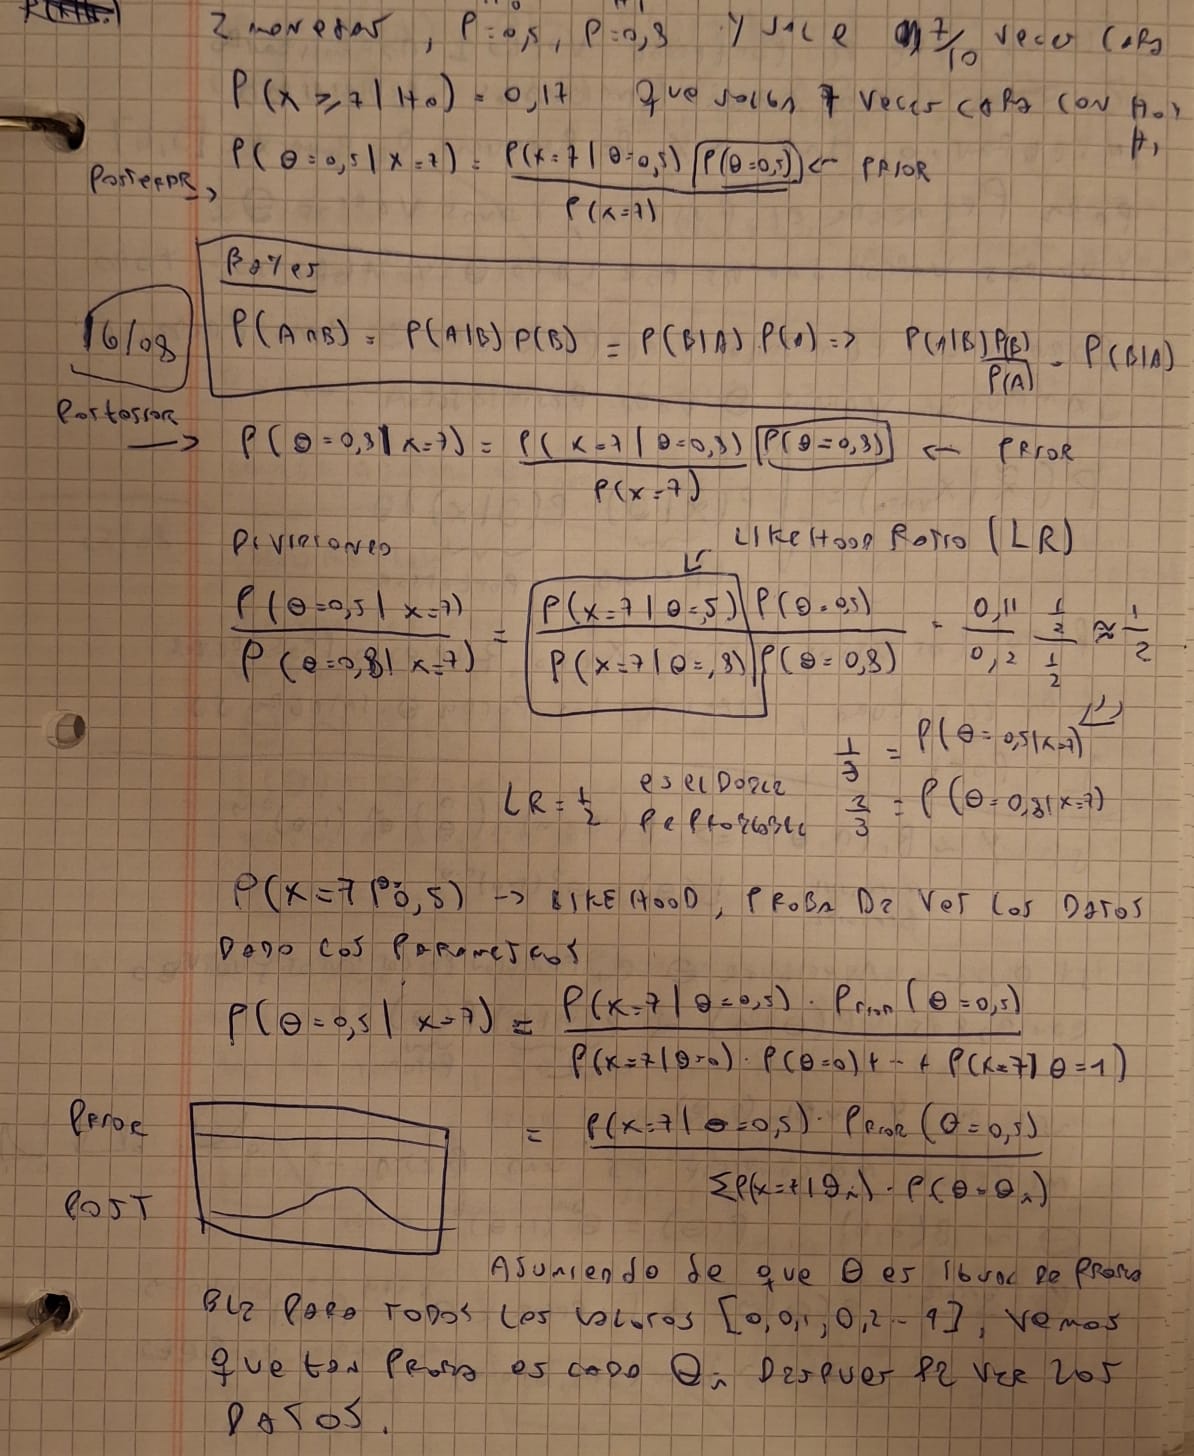 2 monedas, P=0,5, P=0,8 Y sale 7/10 veces cara
P(x≥7|H0) = 0,17 que salgan 7 veces cara con H0,
H1
P(θ=0,5|x=7) = P(x=7|θ=0,5) P(θ=0,5) ← PRIOR
Posterior →
P(x=7)
Bayes
16/08
P(A∩B) = P(A|B) P(B) = P(B|A) P(A) => P(A|B) P(B) / P(A) = P(B|A)
Posterior →
P(θ=0,8|x=7) = P(x=7|θ=0,8) P(θ=0,8) ← PRIOR
P(x=7)
Dividiendo
LIKELIHOOD Ratio (LR)
P(θ=0,5|x=7) / P(θ=0,8|x=7) = P(x=7|θ=,5) P(θ=0,5) / P(x=7|θ=,8) P(θ=0,8) = 0,11/0,2 1/2 / 1/2 ≈ 1/2
1/3 = P(θ=0,5|x=7)
LR = 1/2 es el Doble
de Probable
2/3 = P(θ=0,8|x=7)
P(x=7|θ=0,5) → LIKEHOOD, PROBA DE Ver los DATOS
DADO LOS PARAMETROS
P(θ=0,5|x=7) = P(x=7|θ=0,5) · Prior(θ=0,5)
P(x=7|θ=0) · P(θ=0) + -- + P(x=7|θ=1)
PRIOR
= P(x=7|θ=0,5) · Prior(θ=0,5)
POST
ΣP(x=7|θi) · P(θ=θi)
Asumiendo de que θ es igual de Proba
Ble Para TODOS Los valores [0,0,1,0,2--1], vemos
que tan Proba es cada θi Despues de ver Los
DATOS.